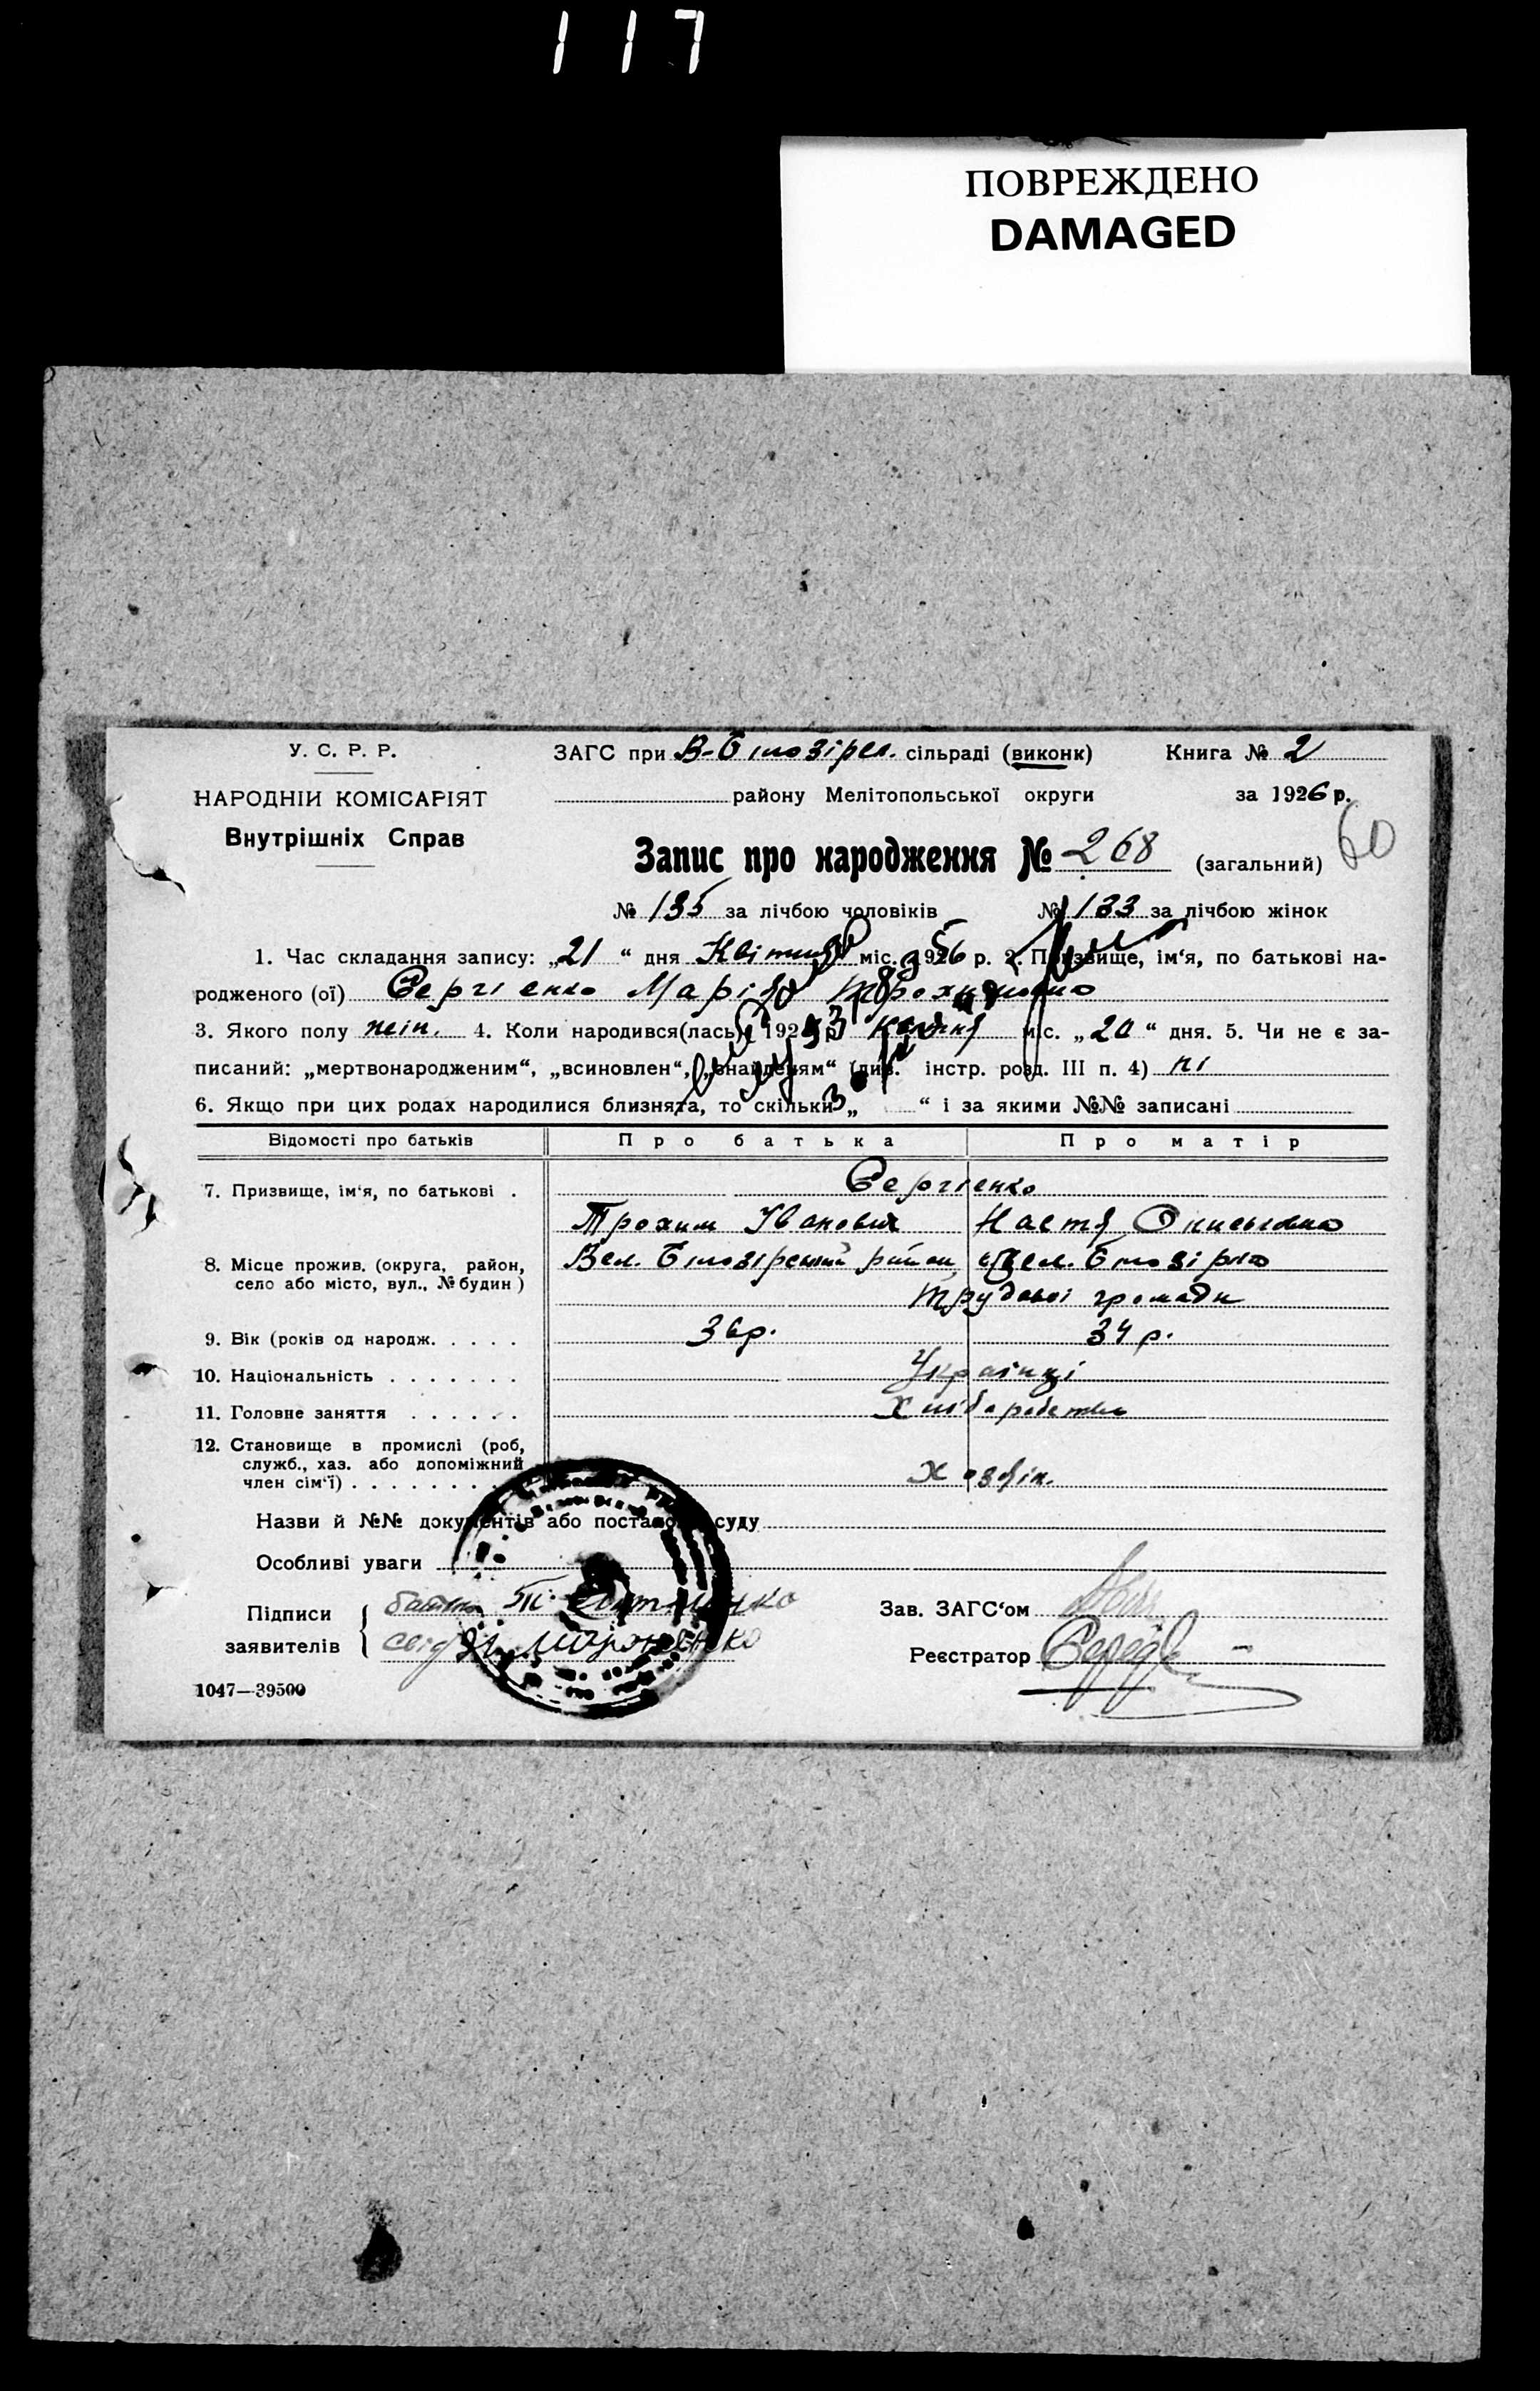 117
ПОВРЕЖДЕНО
DAMAGED
У. С. Р. Р.
НАРОДНІЙ КОМІСАРІЯТ
Внутрішніх Справ
ЗАГС при В-Білозірсл. сільраді (виконк) Книга № 2
району Мелітопольської округи за 1926 р.
60
Запис про народження № 268 (загальний)
№ 135 за лічбою чоловіків № 133 за лічбою жінок
1. Час складання запису: „21“ дня Квітня міс. 1926 р. 2. Призвище, ім‘я, по батькові на-
родженого (ої) Сергіенко Марія Трохимовна
3. Якого полу жін. 4. Коли народився(лась) 1926 р. квітня міс. „20“ дня. 5. Чи не є за-
писаний: „мертвонародженим“, „всиновлен“, „знайденям“ (див. інстр. розд. III п. 4) ні
6. Якщо при цих родах народилися близнята, то скільки „ “ і за якими №№ записані
Відомості про батьків Про батька Про матір
7. Призвище, ім‘я, по батькові . Сергіенко
Трохим Іванович Настя Онисьовна
8. Місце прожив. (округа, район, село або місто, вул., № будин) Вел. Білозірський район с Вел. Білозірка
Трудової громади
9. Вік (років од народж. . . . . 36р. 34 р.
10. Національність . . . . . . . Українці
11. Головне заняття . . . . . . Хліборобство
12. Становище в промислі (роб, служб., хаз. або допоміжний член сім‘ї) . . . . . . . Хозяін.
Назви й №№ документів або постанов суду
Особливі уваги
Підписи заявителів { батько Т.
свід. Мироненко
Зав. ЗАГС‘ом
Реєстратор Середа
1047—39500